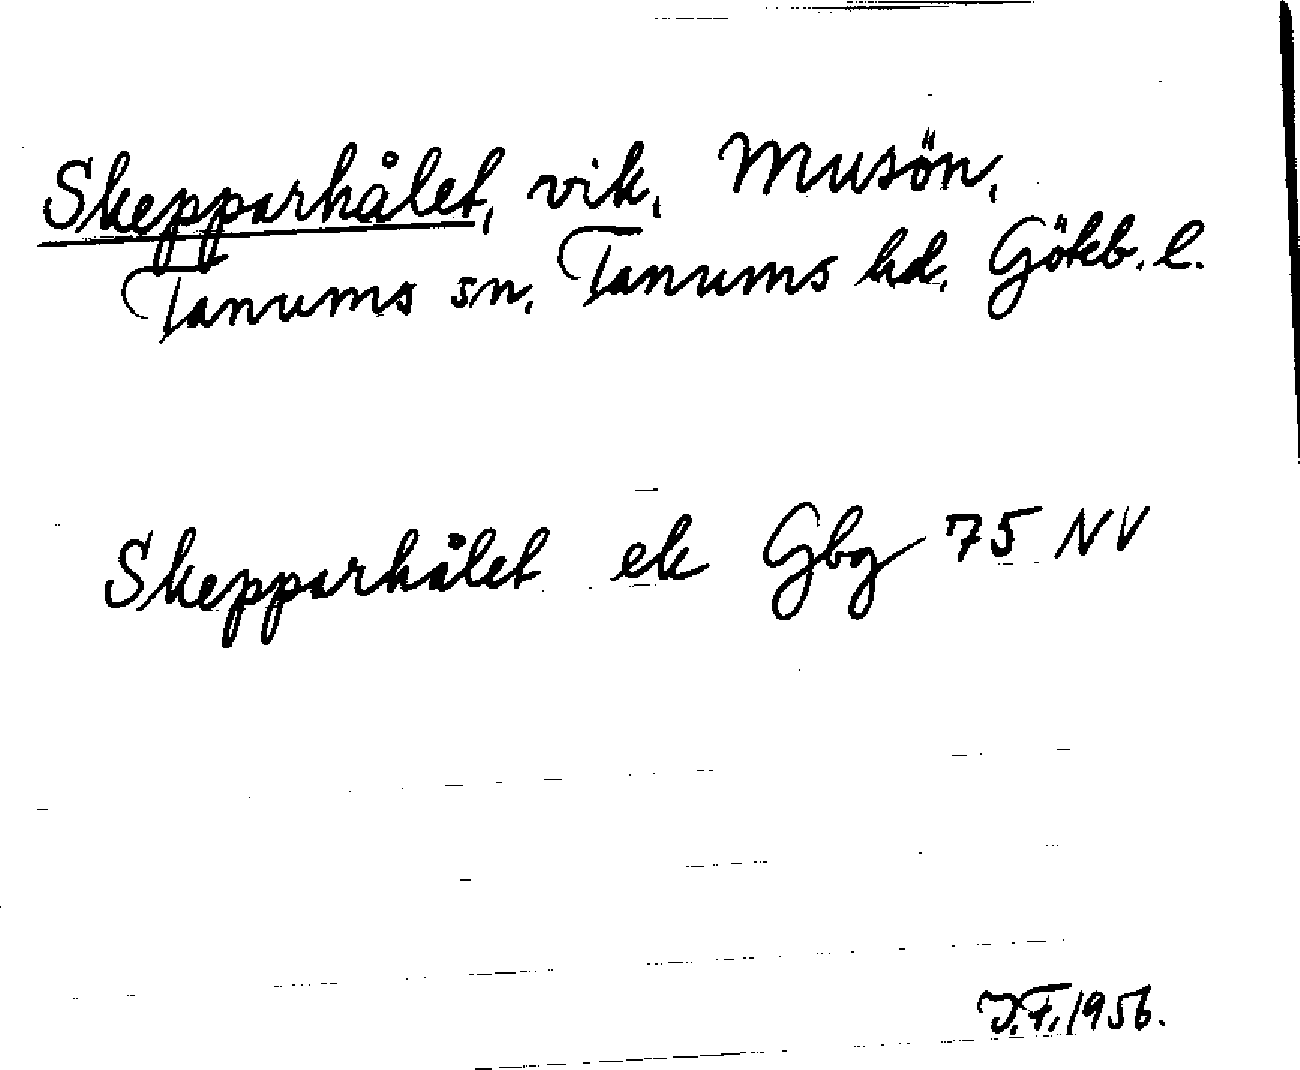 Skepparhålet, vik, Musön,
Tanums sn, Tanums hd, Göteb. l.
Skepparhålet ek Gbg 75 NV
J.F. 1956.